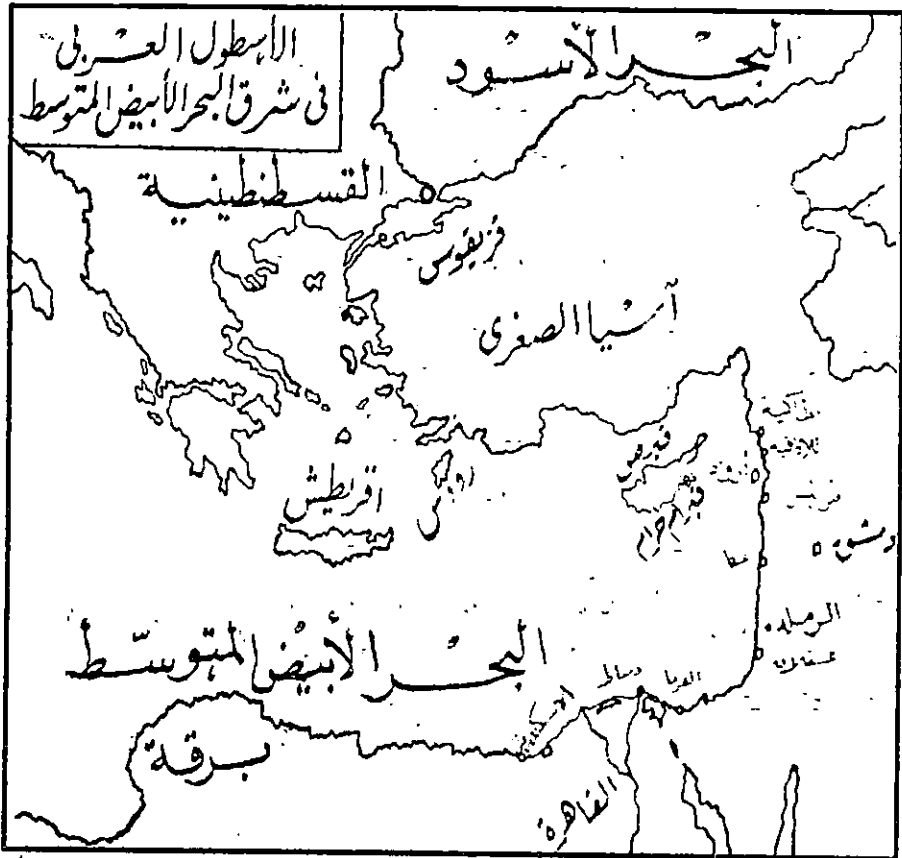 الأسطول العربى
فى شرق البحر الأبيض المتوسط
البحر الأسود
القسطنطينية
فزيقوس
آسيا الصغرى
قبرص
اقريطش
اللاذقية
دمشق
عكا
الرملة
عسقلان
البحر الأبيض المتوسّط
الفرما
دمياط
برقة
القاهرة